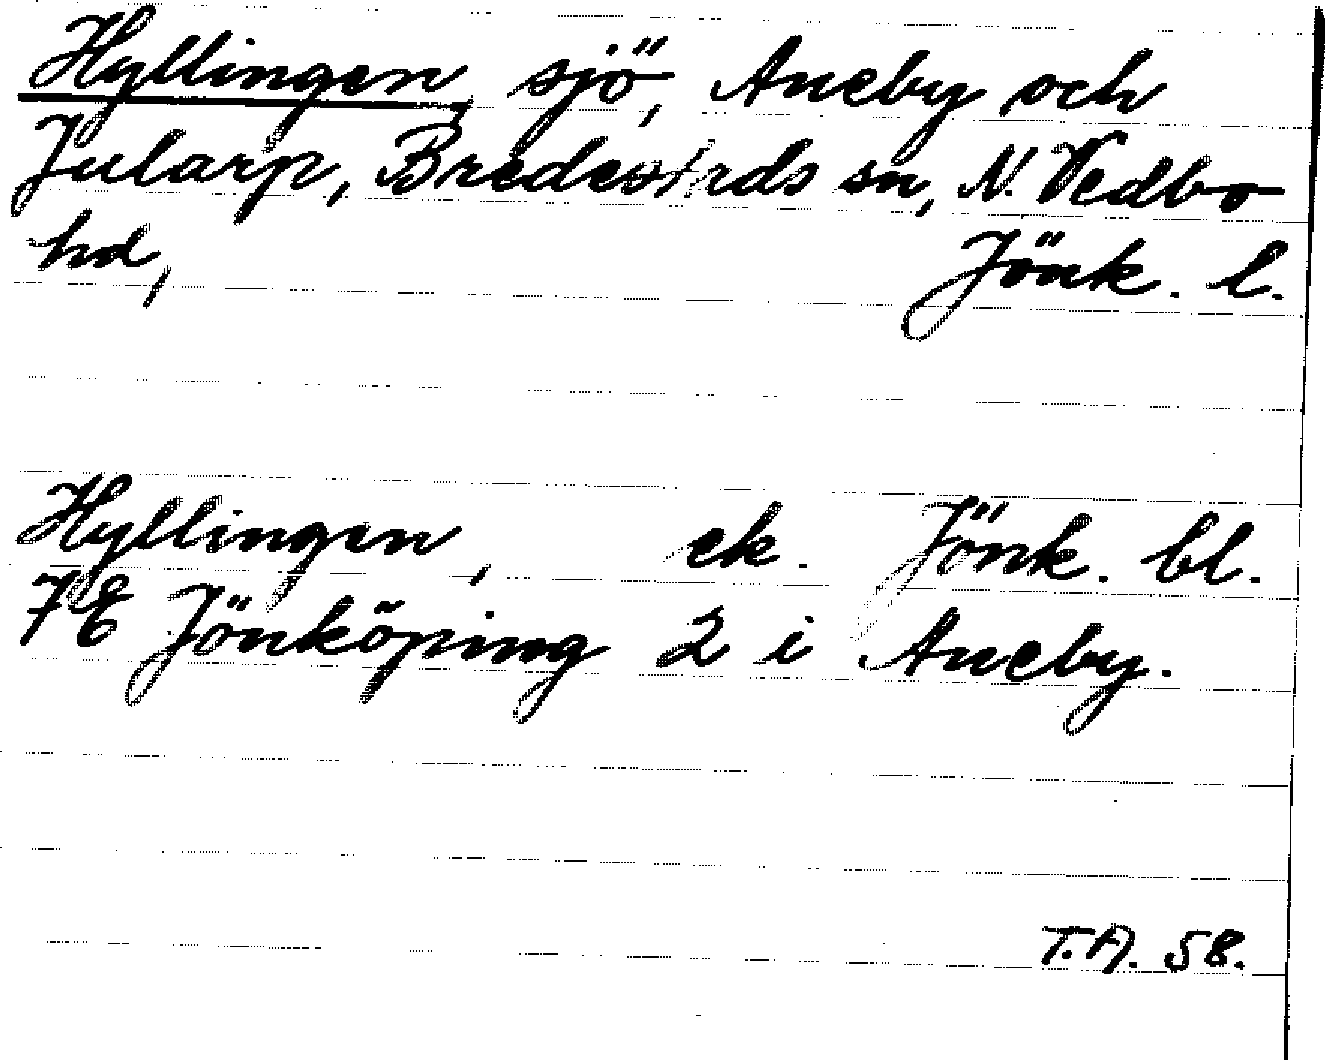 Hyllingen, sjö, Aneby och
Jularp, Bredestads sn, N. Vedbo
hd, Jönk. l.
Hyllingen, ek. Jönk. bl.
7E Jönköping 2 i Aneby.
T.A. 58.